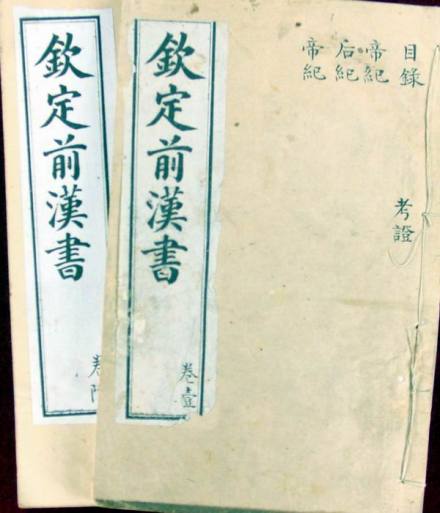 目錄
考證
帝紀
后紀
帝紀
欽定前漢書
卷壹
欽定前漢書
卷